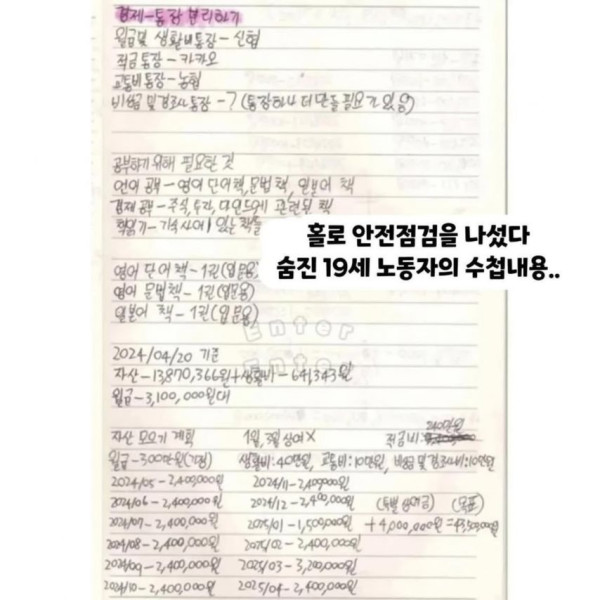 경제-통장 분리하기
월급및 생활비통장-신협
적금통장-카카오
교통비통장-농협
비상금 및 경조사통장-? (통장하나 더 만들 필요가 있음)
공부하기 위해 필요한 것
언어 공부-영어 단어책, 문법책, 일본어 책
경제 공부-주식, 수익, 마인드에 관련된 책
책읽기-기숙사에 있는 책들
홀로 안전점검을 나섰다
숨진 19세 노동자의 수첩내용..
영어 단어 책-1권(입문용)
영어 문법책-1권(입문용)
일본어 책-1권(입문용)
Enter
Enter
2024/04/20 기준
자산-13,870,366원+생활비-641,343원
월급-3,100,000원대
240만원
자산 모으기 계획 1월, 3월 상여X 적금비:
월급-300만원(가정) 생활비:40만원, 교통비:10만원, 비상금 및 경조사비:10만원
2024/05-2,400,000원 2024/11-2,400,000원
2024/06-2,400,000원 2024/12-2,400,000원 (특별 상여금) (목표)
2024/07-2,400,000원 2025/01-1,500,000원 +4,000,000원=43,500,000원
2024/08-2,400,000원 2025/02-2,400,000원
2024/09-2,400,000원 2025/03-3,200,000원
2024/10-2,400,000원 2025/04-2,400,000원